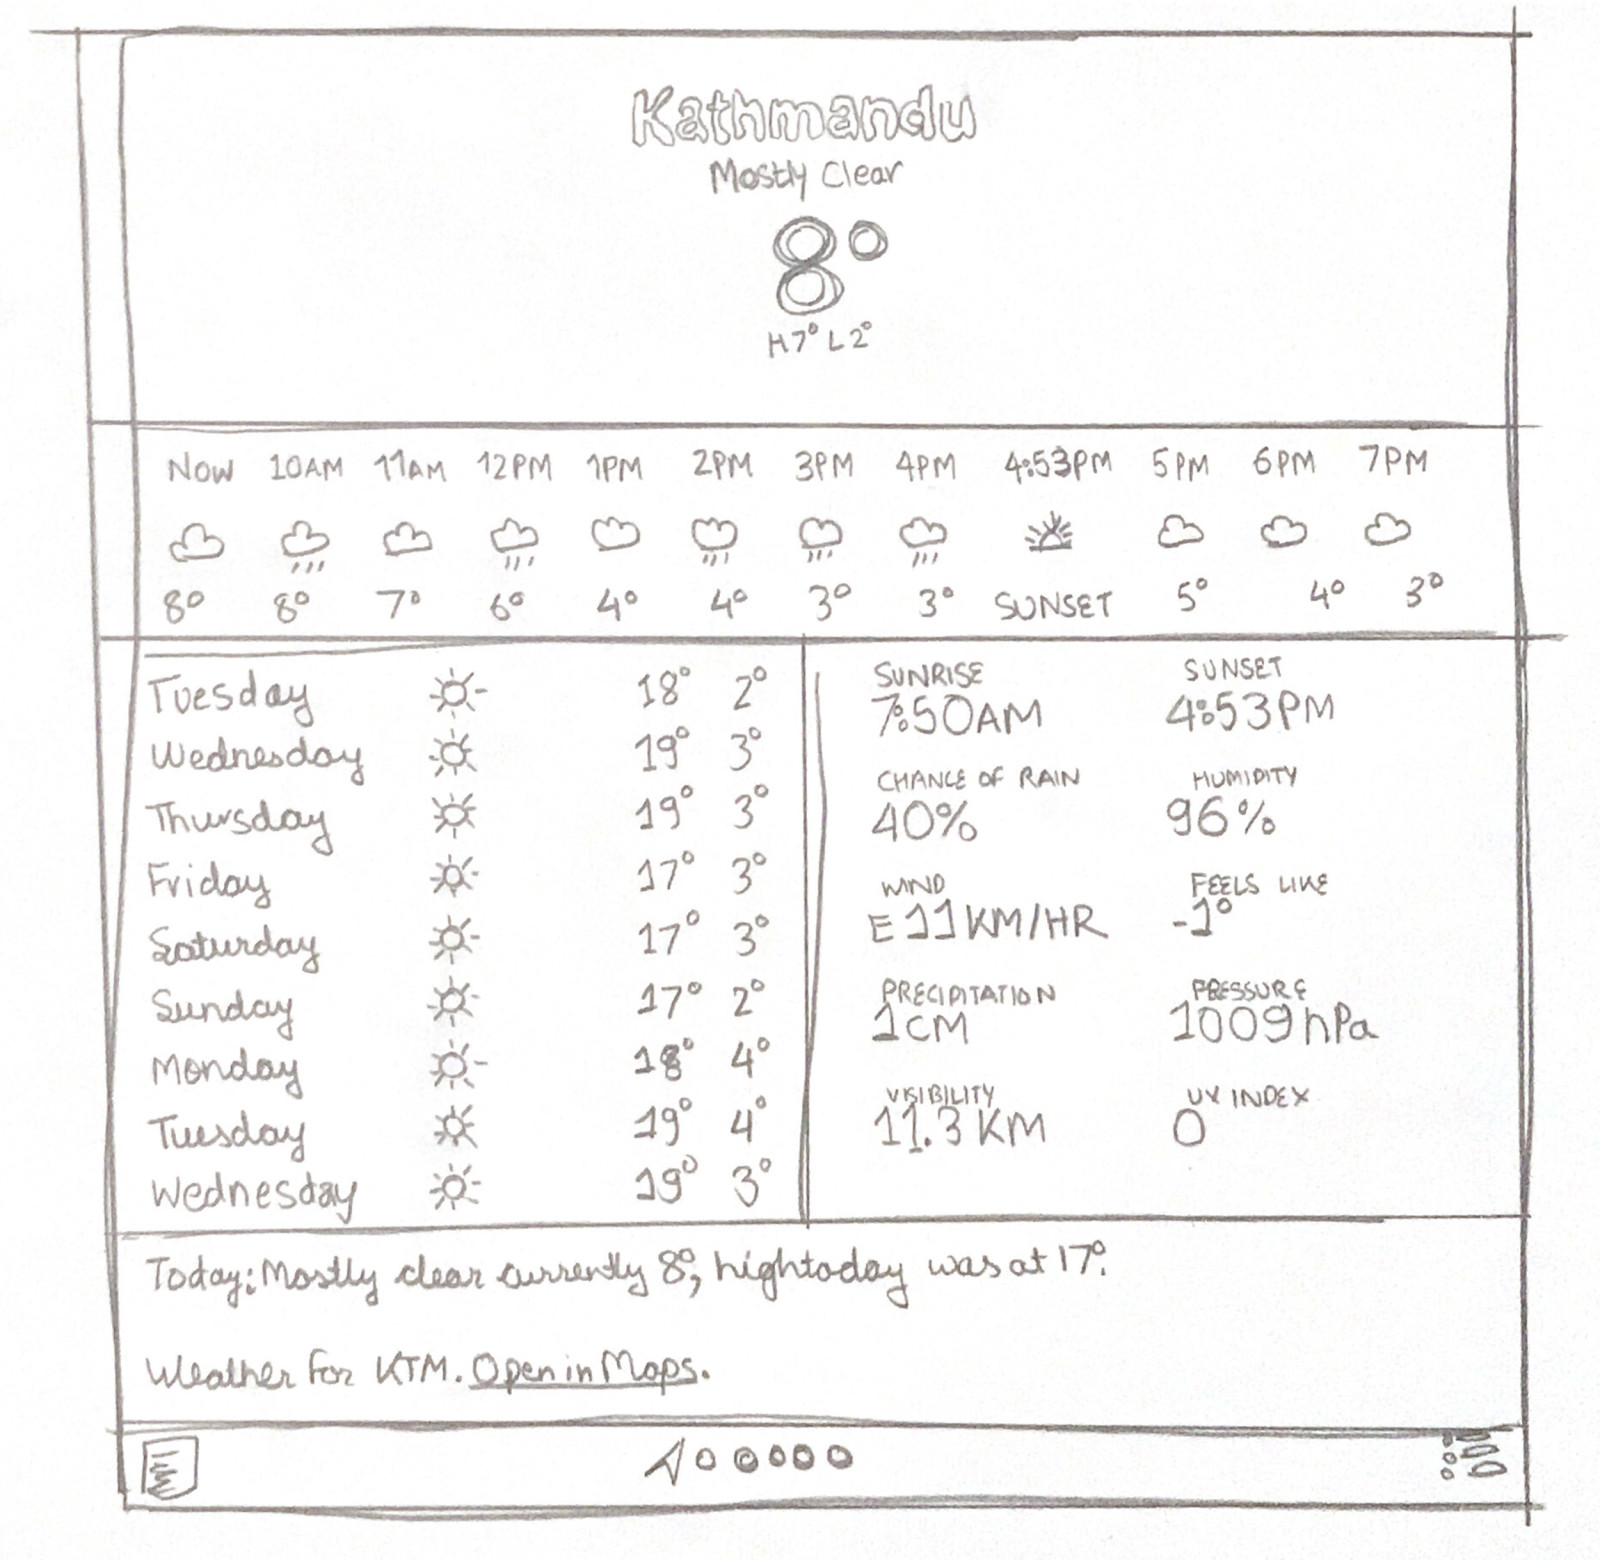 Kathmandu
Mostly Clear
8°
H7° L2°
NOW 10AM 11AM 12PM 1PM 2PM 3PM 4PM 4:53PM 5PM 6PM 7PM
8° 8° 7° 6° 4° 4° 3° 3° SUNSET 5° 4° 3°
Tuesday 18° 2°
Wednesday 19° 3°
Thursday 19° 3°
Friday 17° 3°
Saturday 17° 3°
Sunday 17° 2°
Monday 18° 4°
Tuesday 19° 4°
Wednesday 19° 3°
SUNRISE SUNSET
7:50AM 4:53PM
CHANCE OF RAIN HUMIDITY
40% 96%
WIND FEELS LIKE
E 11KM/HR -1°
PRECIPITATION PRESSURE
1CM 1009hPa
VISIBILITY UV INDEX
11.3 KM 0
Today: Mostly clear currently 8°, hightoday was at 17°.
Weather for KTM. Open in Maps.